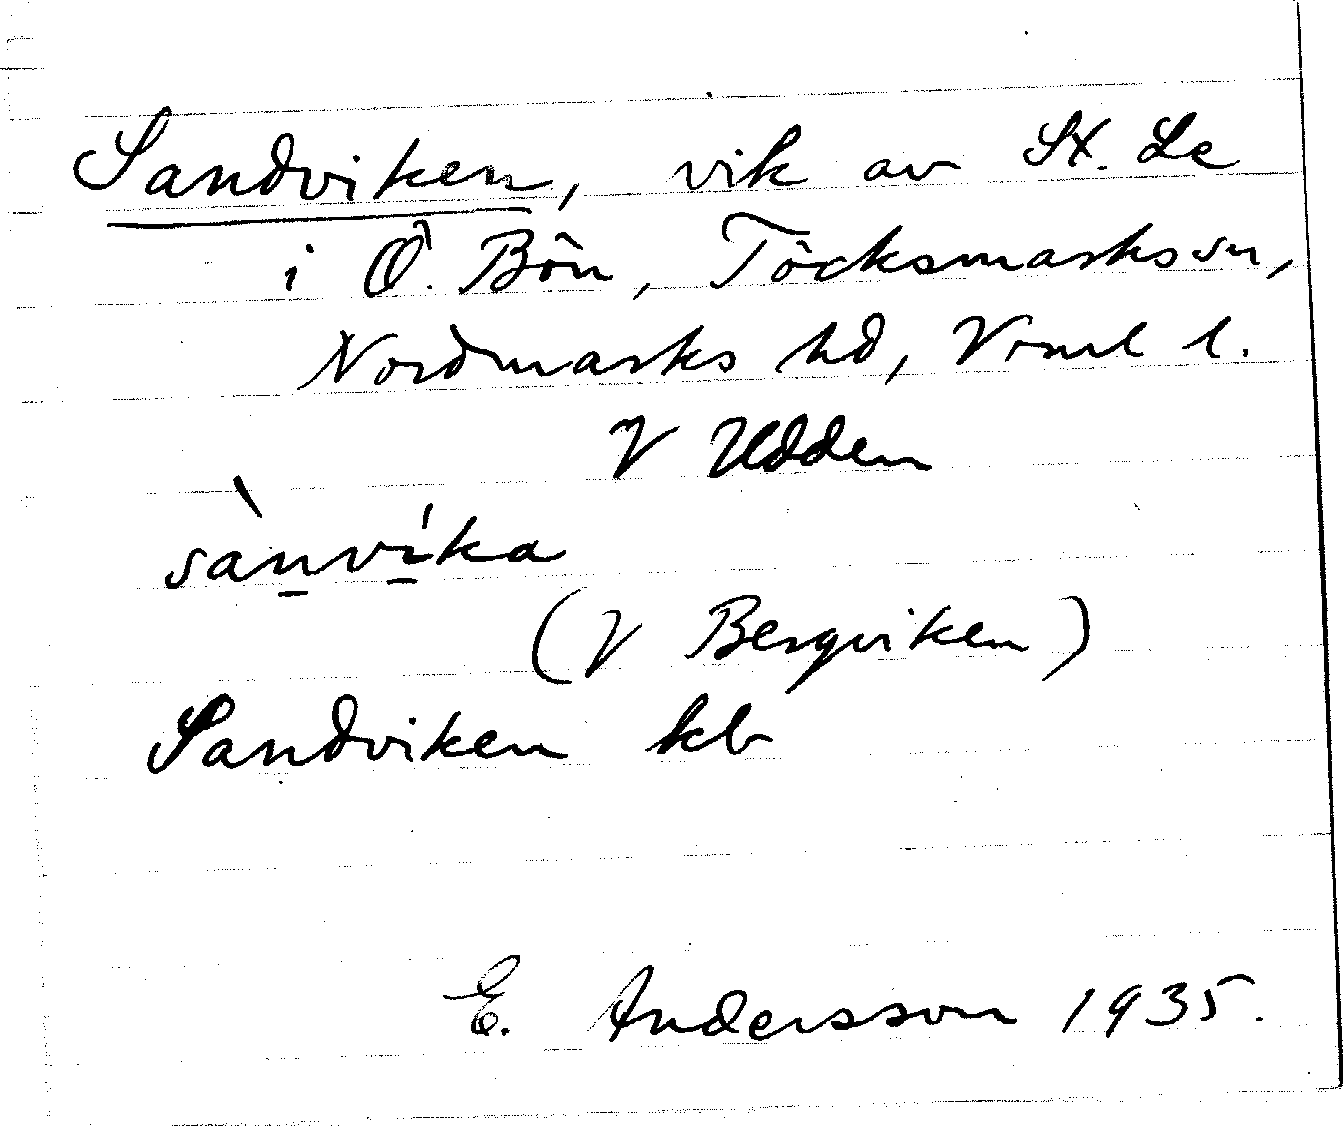 Sandviken, vik av St. Le
i Ö. Bön, Töcksmarks sn,
Nordmarks hd, Vrml l.
V Udden
sànvíka
(V Bergviken)
Sandviken kb
E. Andersson 1935.